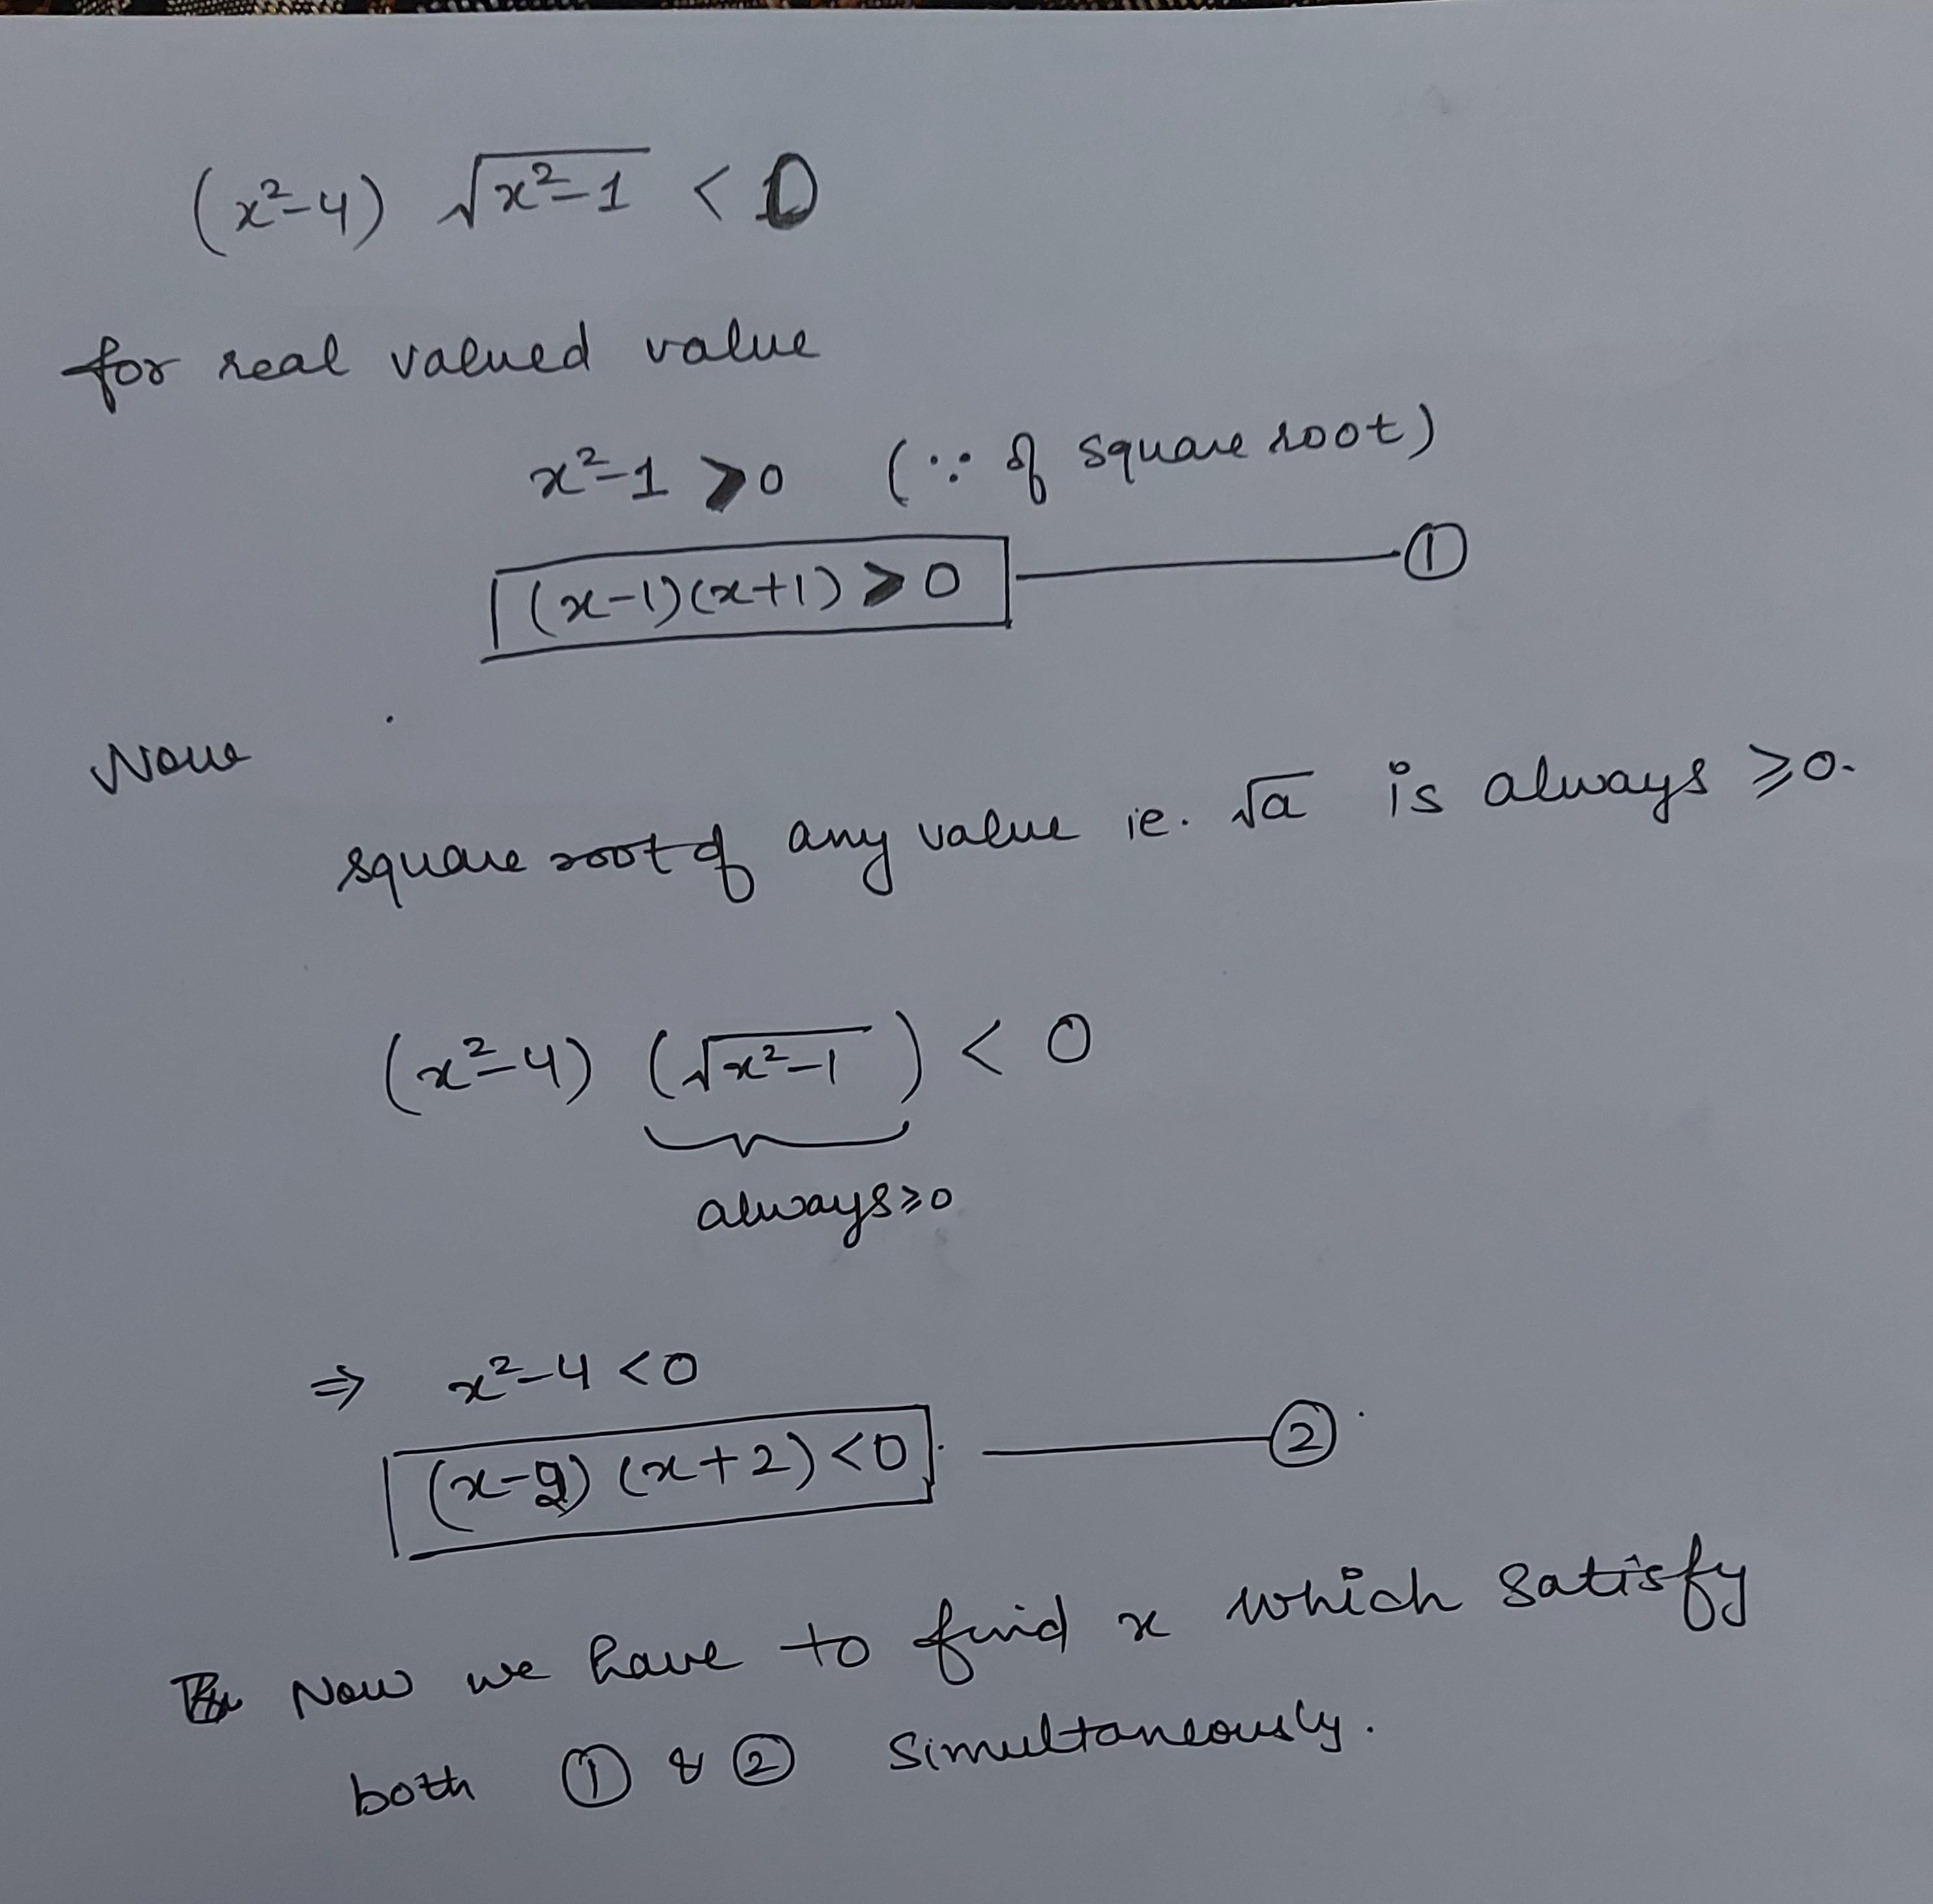 (x²-4) √x²-1 < 0
for real valued value
x²-1 > 0 (∵ of square root)
(x-1)(x+1) > 0 ——— ①
Now
square root of any value ie. √a is always ⩾0.
(x²-4) (√x²-1) < 0
always⩾0
⇒ x²-4 <0
(x-2) (x+2) <0 ——— ②
Now we have to find x which satisfy
both ① & ② simultaneously.